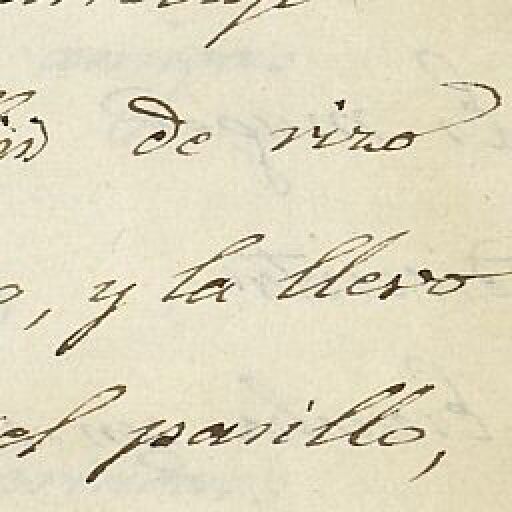 de rizo
, y la llevo
el pasillo,